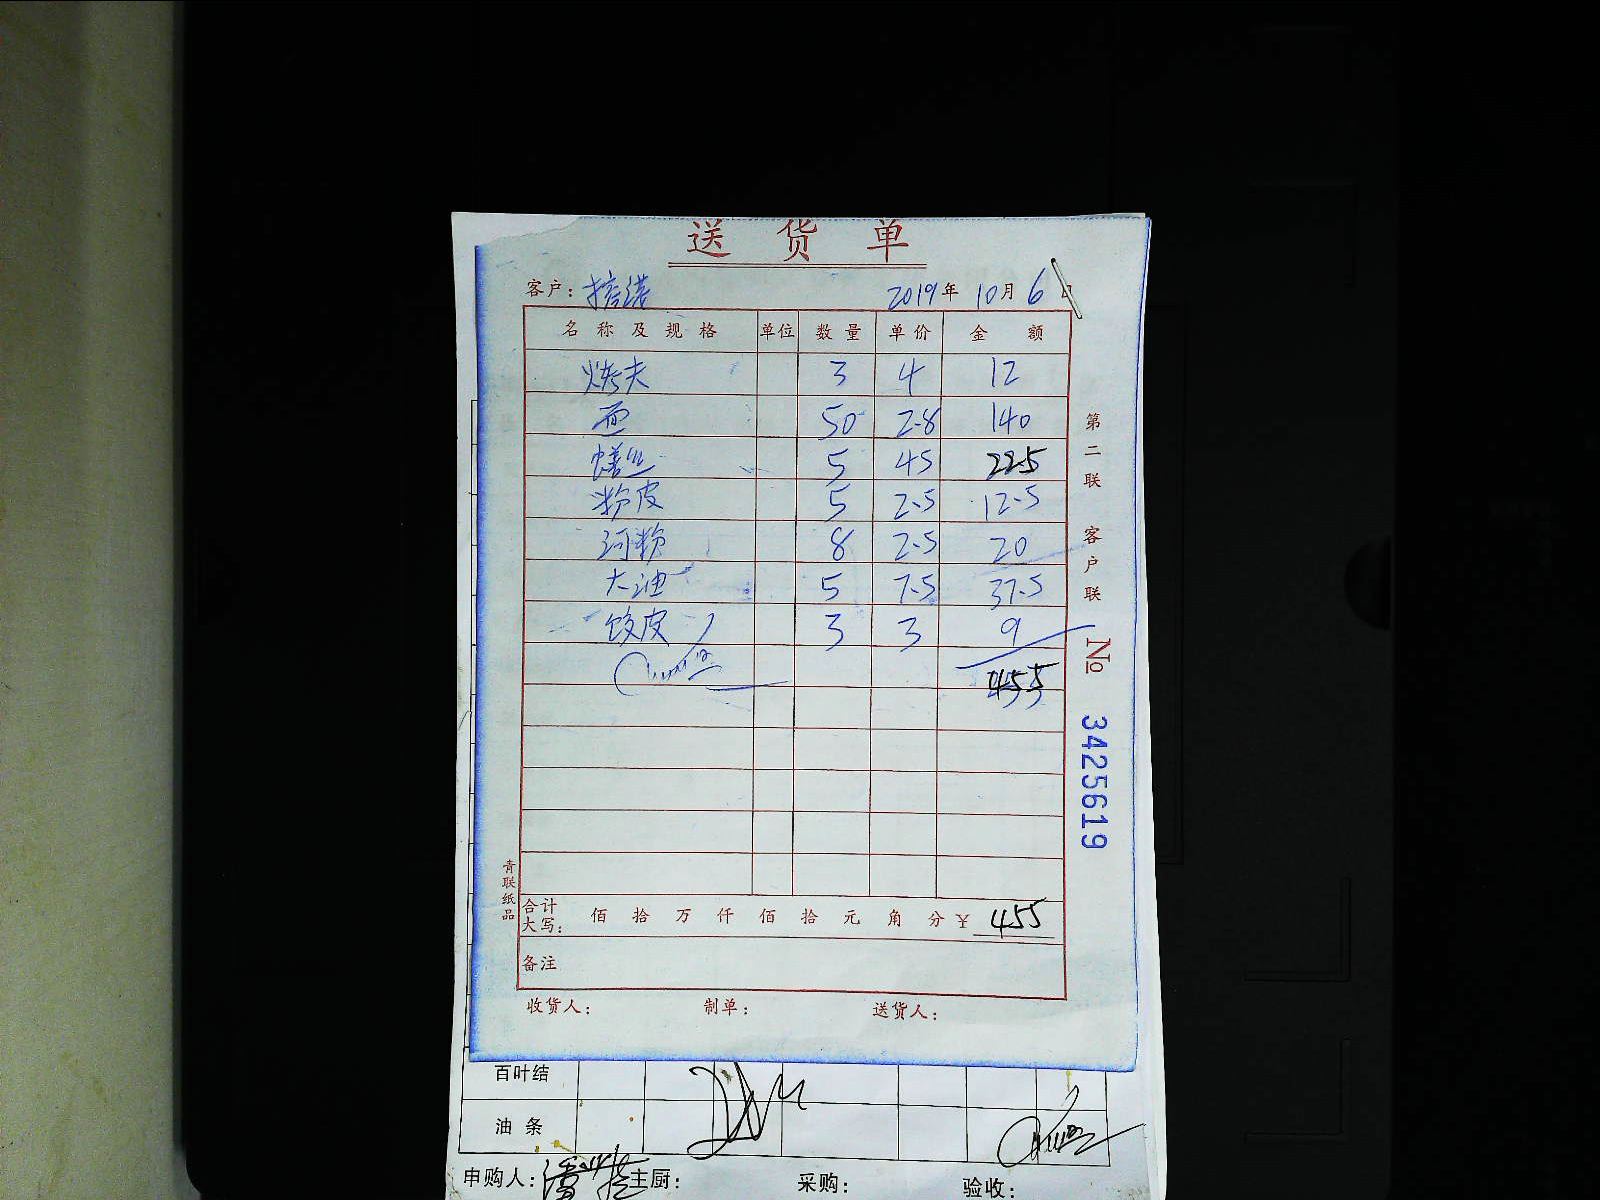 送货单
客户: 2019年10月6日
名称及规格 单位 数量 单价 金额
烤夫 3 4 12
面 50 2.8 140
蟮丝 5 45 225
粉皮 5 2.5 12.5
河粉 8 2.5 20
大油 5 7.5 37.5
饺皮 3 3 9
455
合计大写: 佰拾万仟佰拾元角分¥ 455
备注
收货人: 制单: 送货人:
青联纸品
第二联 客户联
No 3425619
百叶结
油条
申购人: 主厨: 采购: 验收: